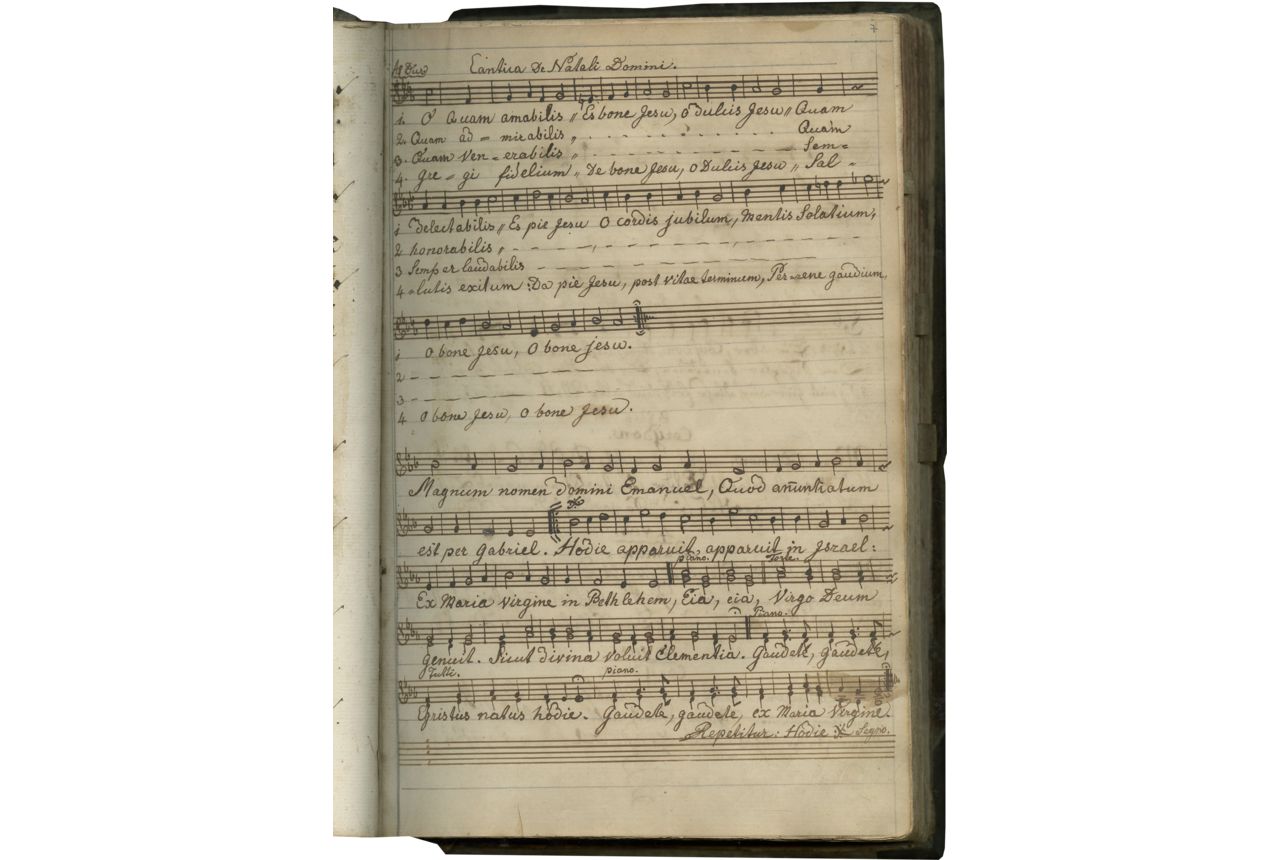 As Dur Cantica De Natali Domini.
1. O Quam amabilis ,, Es bone Jesu, O dulcis Jesu ,, Quam
2. Quam ad = mirabilis ,, Quam
3. Quam Ven = erabilis ,, Sem=
4. Gre = gi fidelium ,, De bone Jesu, O Dulcis Jesu ,, Sal =
1 delectabilis ,, Es pie Jesu O cordis jubilum, Mentis Solatium,
2 honorabilis ,,
3 Semper laudabilis
4 =lutis exitum : Da pie Jesu, post vitae terminum, Per=ene gaudium,
1 O bone Jesu, O bone jesu.
2
3
4 O bone Jesu, O bone Jesu.
Magnum nomen domini Emanuel, Quod anuntiatum
est per Gabriel. Hodie apparuit, apparuit in Jsrael:
piano. Forte.
Ex Maria virgine in Bethlehem, Eia, eia, Virgo Deum
Piano.
genuit. Sicut divina voluit Clementia. Gaudete, gaudete,
Tutti. piano.
Cristus natus hodie. Gaudete, gaudete, ex Maria Virgine.
Repetitur: Hodie Segno.